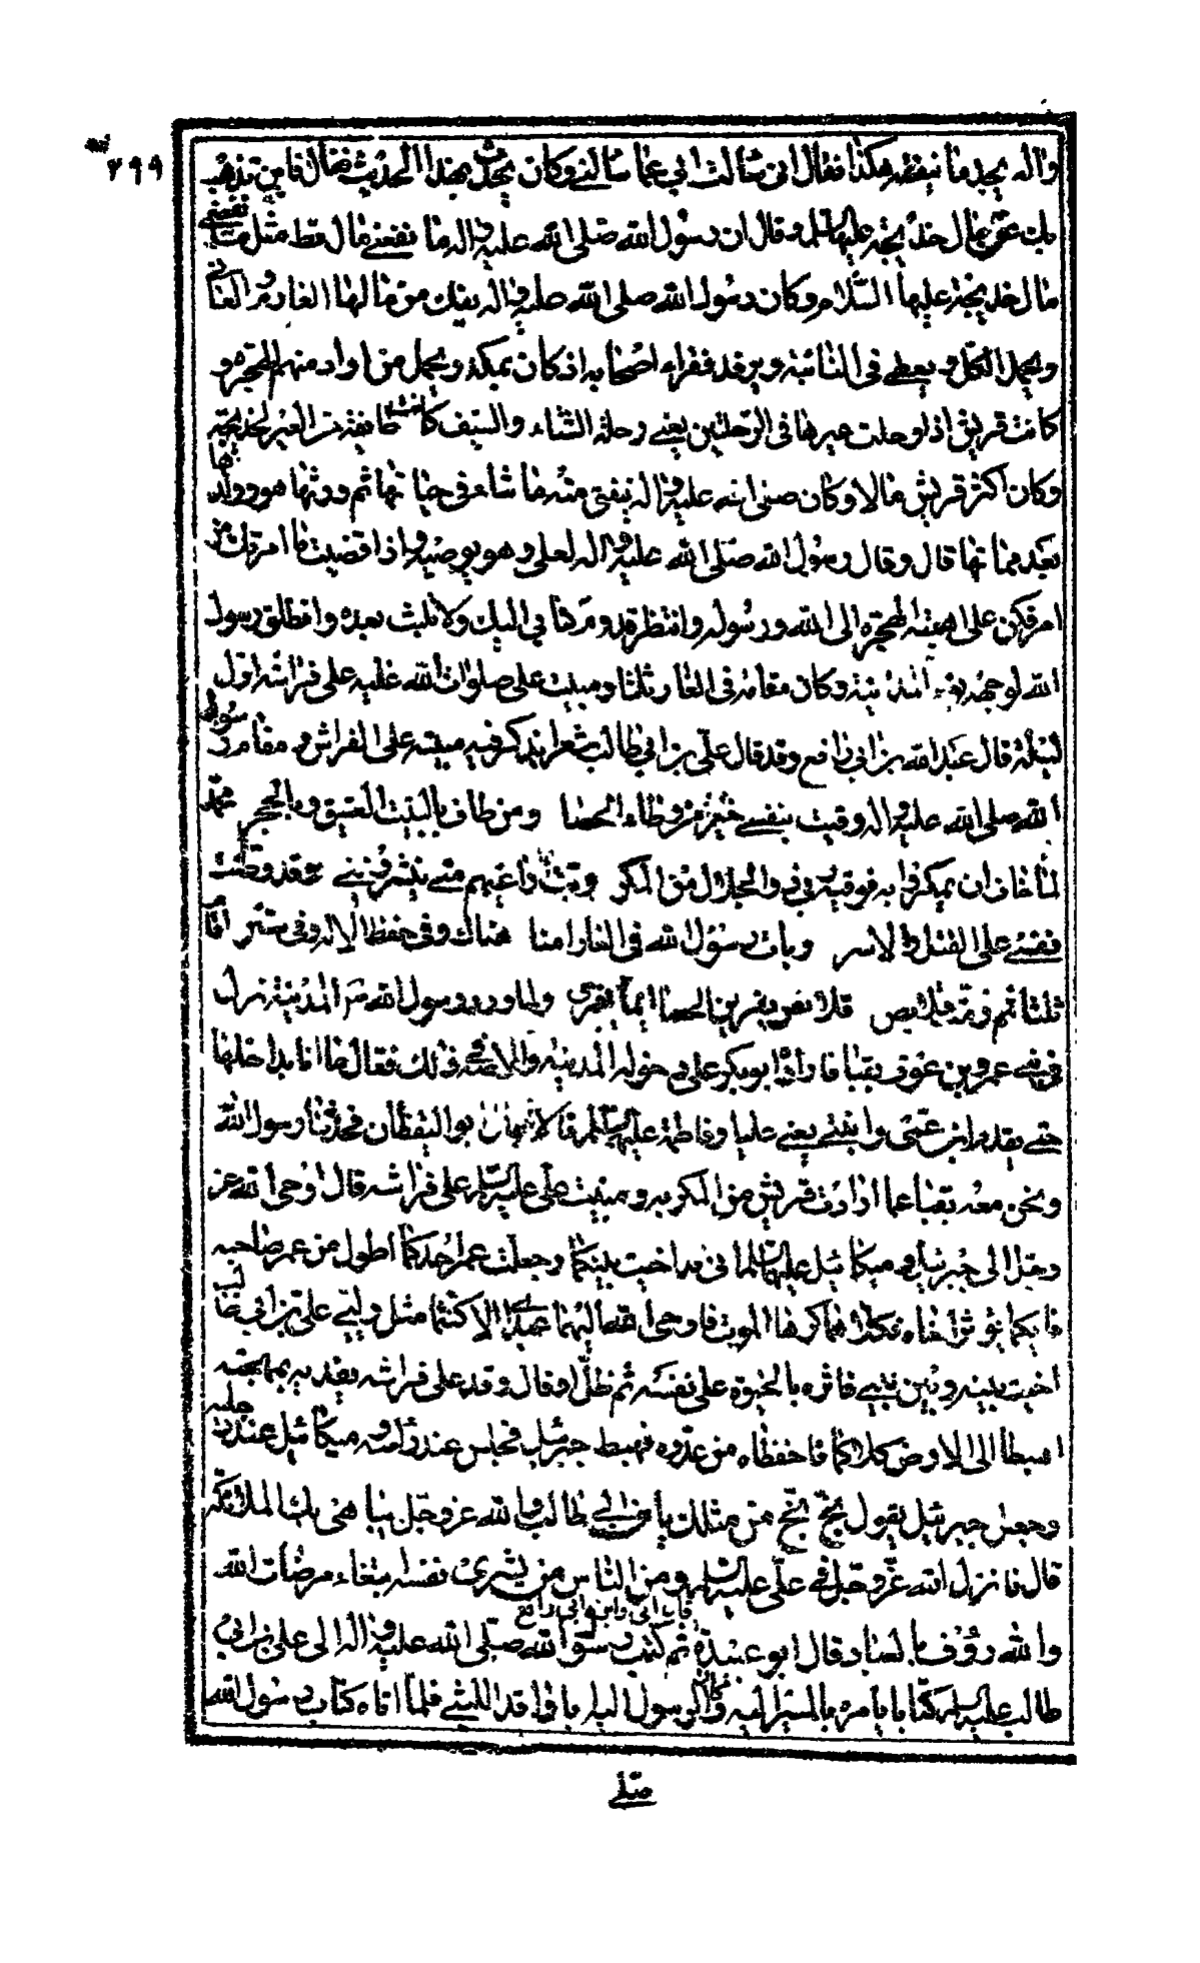 ٢٩٩
واله يجد ما ينفقه هكذا فقال اني سألت ابي عما سألتني وكان يحدث بهذا الحديث فقال فاين تذهب
بك عن مال خديجة عليها السلم وقال ان رسول الله صلى الله عليه واله ما نفعني مال قط مثل ما نفعني
مال خديجة عليها السلام وكان رسول الله صلى الله عليه واله يفك من مالها الغارم والعاني
ويحمل الكل ويعطي في النائبة ويرفد فقراء اصحابه اذ كان بمكة ويحمل من اراد منهم الهجرة و
كانت قريش اذا رحلت عيرها في الرحلتين يعني رحلة الشتاء والصيف كانت طائفة من العير لخديجة
وكان اكثر قريش مالا وكان صلى الله عليه واله ينفق منه ما شاء في حياتها ثم ورثها هو وولدها
بعد مماتها قال وقال رسول الله صلى الله عليه واله لعلي وهو يوصيه واذا قضيت ما امرتك من
امر فكن على اهبة الهجرة الى الله ورسوله وانتظر قدوم كتابي اليك ولا تلبث بعده وانطلق رسول
الله لوجهه يؤم المدينة وكان مقامه في الغار ثلثا ومبيت علي صلوات الله عليه على فراشه اول
ليلة قال عبد الله بن ابي رافع وقد قال علي بن ابي طالب شعرا يذكر فيه مبيته على الفراش ومقام رسول
الله صلى الله عليه واله وقيت بنفسي خير من وطاء الحصا ومن طاف بالبيت العتيق وبالحجر محمد
لما خاف ان يمكروا به فوقيه ربي ذو الجلال من المكر وبت اراعيهم متى ينشرونني وقد وطنت
نفسي على القتل والاسر وبات رسول الله في الغار امنا هناك وفي حفظ الاله وفي ستر اقام
ثلثا ثم زمت قلائص قلائص يفرين الحصا اينما يفري ولما ورد رسول الله ص المدينة نزل
في بني عمرو بن عوف بقبا فاراده ابو بكر على دخوله المدينة والاصه في ذلك فقال ما انا بداخلها
حتى يقدم ابن عمى وابنتي يعني عليا وفاطمة عليهما السلم قالا قال ابو اليقظان فحدثنا رسول الله
ونحن معه بقبا عما ارادت قريش من المكر به ومبيت علي عليه السلم على فراشه قال اوحى الله عز
وجل الى جبرئيل وميكائيل عليهما السلم اني قد اخيت بينكما وجعلت عمر احدكما اطول من عمر صاحبه
فايكما يؤثر اخاه فكلاهما كرها الموت فاوحى الله اليهما عبداي الا كنتما مثل وليي علي بن ابي طالب
اخيت بينه وبين نبيي فاثره بالحيوة على نفسه ثم ظل او قال رقد على فراشه يفديه بمهجته
اهبطا الى الارض كلاكما فاحفظاه من عدوه فهبط جبرئيل فجلس عند راسه وميكائيل عند رجليه
وجعل جبرئيل يقول بخ بخ من مثلك يا بن ابي طالب والله عز وجل يباهي بك الملائكة
قال فانزل الله عز وجل في علي عليه السلم ومن الناس من يشري نفسه ابتغاء مرضات الله
والله رؤف بالعباد قال ابو عبيدة قال ابي وابن ابي رافع ثم كتب رسول الله صلى الله عليه واله الى علي بن ابي
طالب عليه السلم كتابا يامره بالمسير اليه وكان الرسول اليه ابا واقد الليثي فلما اتاه كتاب رسول الله
صلى